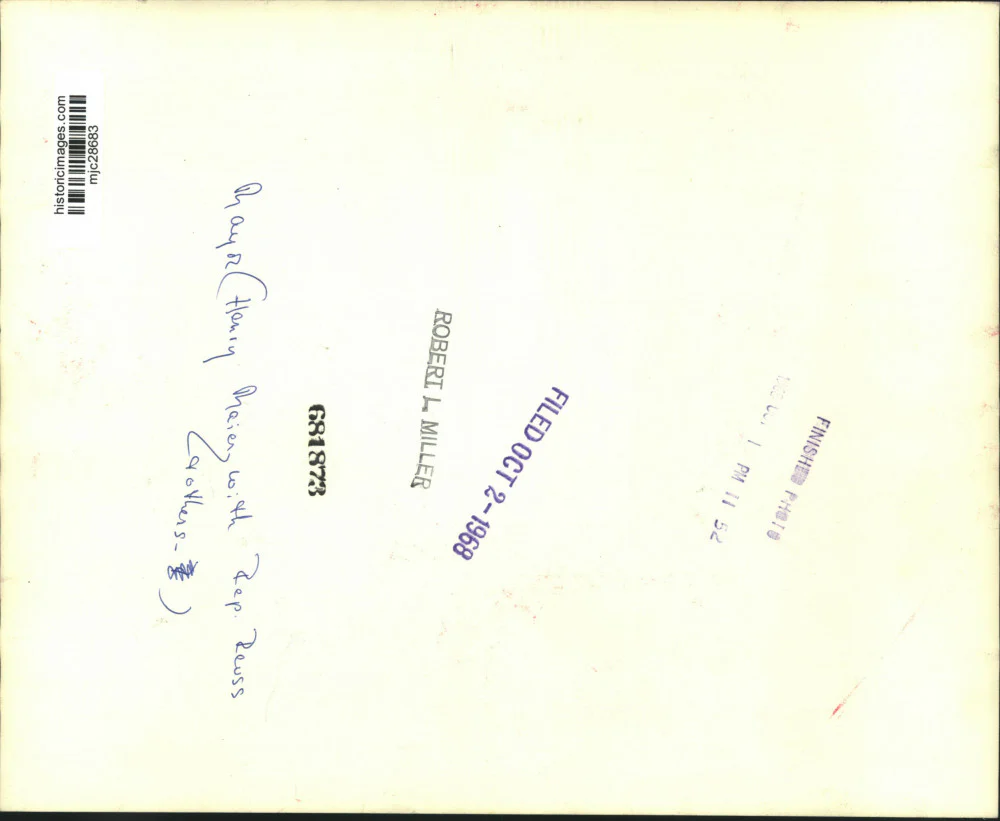 historicimages.com
mjc28683
FINISHED PHOTO
1 PM 11 52
FILED OCT 2-1968
ROBERT L MILLER
681873
Mayor (Henry Maier) with Rep. Reuss
(&others-